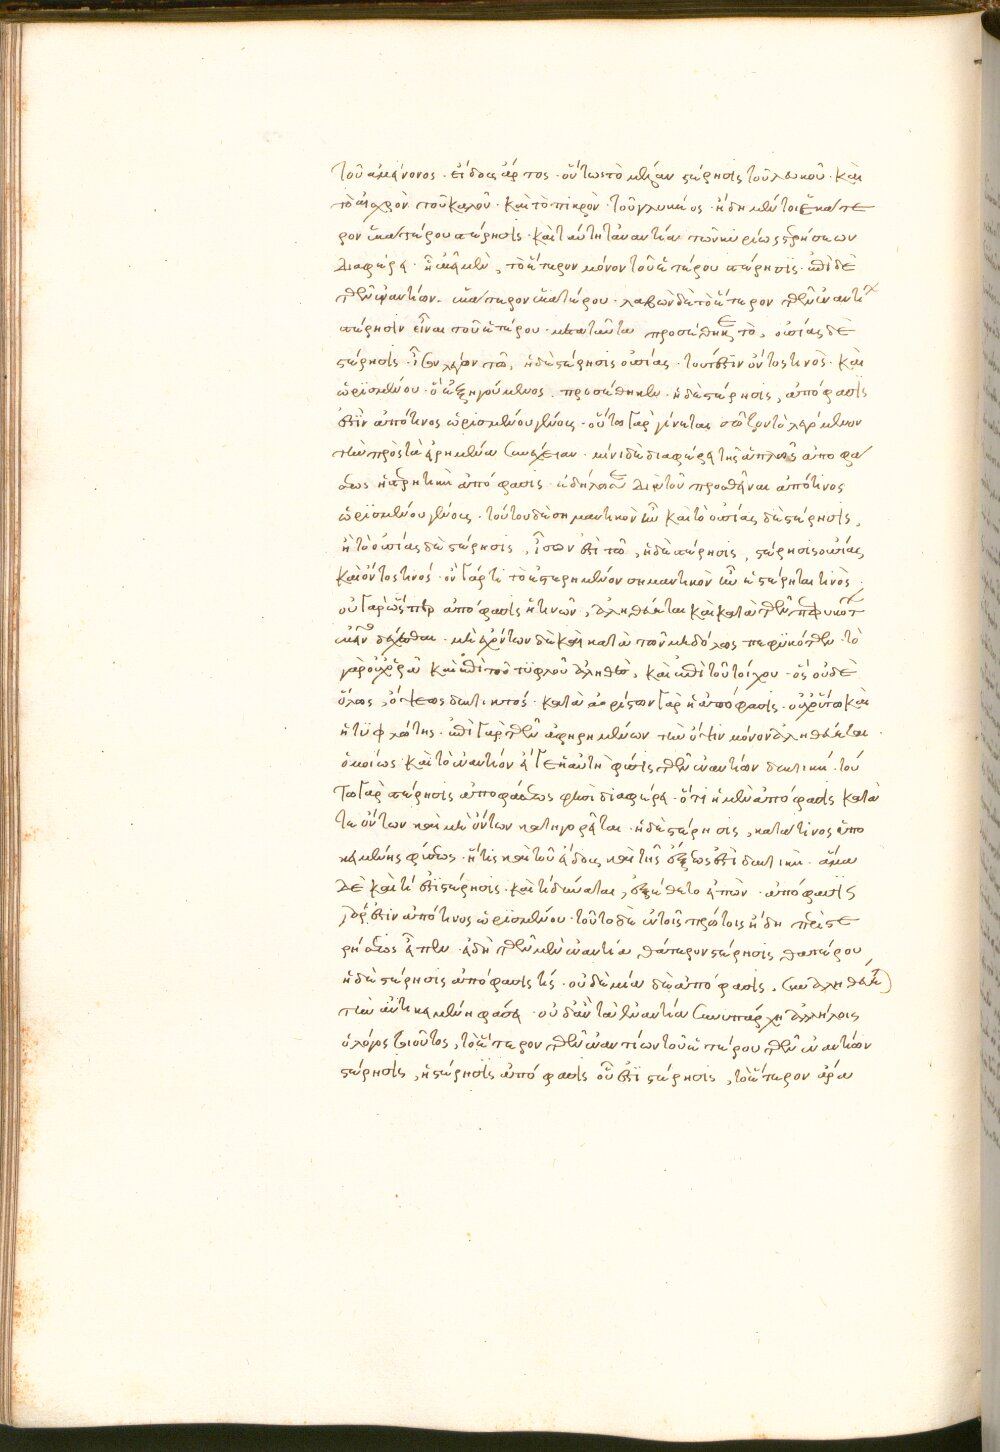 τοῦ ἀμείνονος · εἶδος ἀόριστος · οὕτως τὸ μέλαν στέρησις τοῦ λευκοῦ · καὶ
τὸ αἰσχρὸν τοῦ καλοῦ · καὶ τὸ πικρὸν · τοῦ γλυκέος · ἤδη μέντοι ἑκάτε
ρον ἑκατέρου στέρησις · καὶ ταύτη τἀναντία τῶν κυρίως στερήσεων
διαφέρει · ᾗ ἐκεῖ μὲν, τὸ ἕτερον μόνον τοῦ ἑτέρου στέρησις · ἐπὶ δὲ
τῶν ἐναντίων · ἑκάτερον ἑκατέρου · λαβὼν δὲ τὸ ἕτερον τῶν ἐναντί
στέρησιν εἶναι τοῦ ἑτέρου · μετὰ ταῦτα προσέθηκε τὸ, οὐσίας δὲ
στέρησις · ἴσον λέγων τῶ, ἡ δὲ στέρησις οὐσίας · τουτέστιν ὄντος τινὸς · καὶ
ὡρισμένου · ὃ ἐξηγούμενος προσέθηκεν · ἡ δὲ στέρησις, ἀπόφασίς
ἐστιν ἀπό τινος ὡρισμένου γένους · οὕτω γὰρ γίνεται σῶζον τὸ λεγόμενον
τὴν πρὸς τὰ εἰρημένα συνέχειαν · τίνι δὲ διαφέρει τῆς ἁπλῶς ἀποφά
σεως ἡ στερητικὴ ἀπόφασις · ἐδήλωσε διὰ τοῦ προσθεῖναι ἀπό τινος
ὡρισμένου γένους · τούτου δὲ σημαντικὸν ἦν καὶ τὸ οὐσίας δὲ στέρησις,
ἢ τὸ οὐσίας δὲ στέρησις, ἴσον ἐστὶ τῶ, ἡ δὲ στέρησις, στέρησις οὐσίας
καὶ ὄντος τινός · οὐ γάρ τι τὸ ἐστερημένον σημαντικὸν ἦν ἐστέρηται τινὸς ·
οὐ γὰρ ὥσπερ ἀπόφασις ἥτις οὖν, ἀληθεύεται καὶ κατὰ τῶν πεφυκότ
δέχεσθαι · μὴ ἐχόντων δὲ καὶ κατὰ τῶν μηδόλως πεφυκότων · τὸ
γὰρ οὐχ ὁρᾶ καὶ ἐπὶ τοῦ τυφλοῦ ἀληθὲς, καὶ ἐπὶ τοῦ τοίχου · ὃς οὐδὲ
ὅλως, ὄψεως δεκτικός · κατὰ ἀορίστων γὰρ ἡ ἀπόφασις · οὐχ οὕτω καὶ
ἡ τυφλότης · ἐπὶ γὰρ τῶν ἀφῃρημένων τὴν ὄψιν μόνον ἀληθεύεται ·
ὁμοίως καὶ τὸ ἐναντίον εἴ γε ἡ αὐτὴ φύσις τῶν ἐναντίων δεκτική · τού
τω γὰρ στέρησις ἀποφάσεως φησὶ διαφέρει · ὅτι ἡ μὲν ἀπόφασις κατά
τε ὄντων καὶ μὴ ὄντων κατηγορεῖται · ἡ δὲ στέρησις, κατά τινος ὑπο
κειμένης φύσεως · ἥτις καὶ τοῦ εἴδους καὶ τῆς ἕξεώς ἐστι δεκτικὴ · ἅμα
δὲ καὶ τί ἐστι στέρησις · καὶ τί δύναται, ἐξέθετο εἰπὼν · ἀπόφασίς
γάρ ἐστιν ἀπό τινος ὡρισμένου · τοῦτο δὲ ἐν τοῖς πρώτοις ἤδη περὶ στε
ρήσεως εἶπεν · εἰ δὴ τῶν μὲν ἐναντίων, θάτερον στέρησις θατέρου
ἡ δὲ στέρησις ἀπόφασίς τις · οὐδεμία δὲ ἀπόφασις, συναληθεύει
τῆ ἀντικειμένη φάσει · οὐδ' ἂν τὰ ἐναντία συνυπάρχοι ἀλλήλοις
ὁ λόγος τοιοῦτος, τὸ ἕτερον τῶν ἐναντίων τοῦ ἑτέρου τῶν ἐναντίων
στέρησις, ἡ στέρησις ἀπόφασις οὗ ἐστι στέρησις, τὸ ἕτερον ἄρα